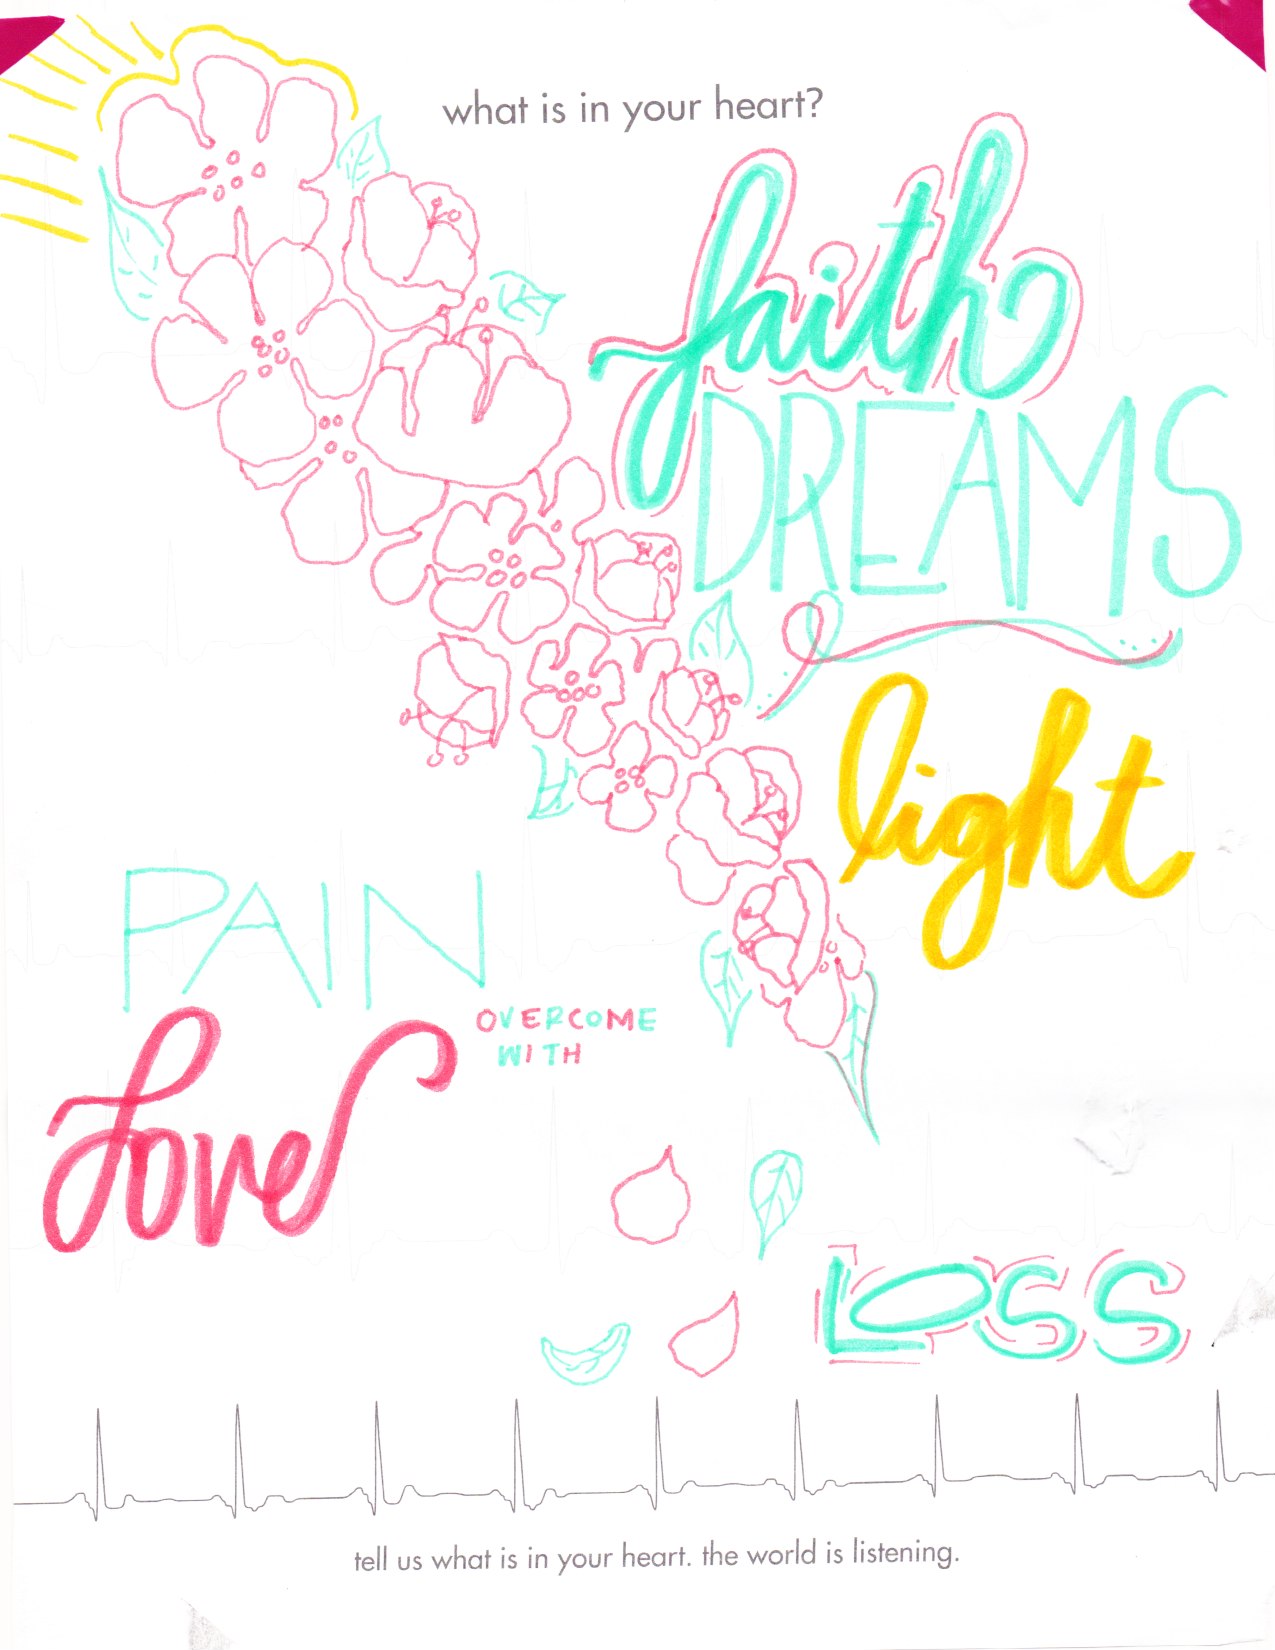 what is in your heart?
faith
DREAMS
light
PAIN
OVERCOME
WITH
Love
LOSS
tell us what is in your heart. the world is listening.